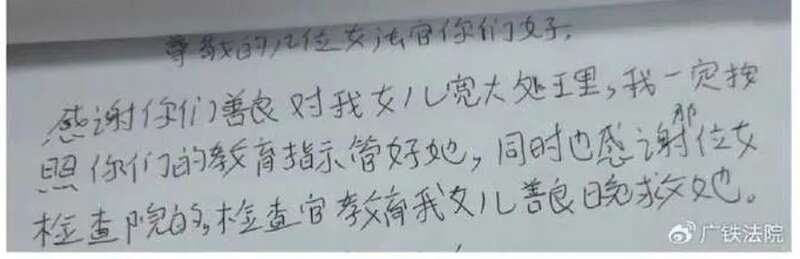 尊敬的几位女法官你们好,
感谢你们善良对我女儿宽大处理,我一定按
照你们的教育指示管好她,同时也感谢那位女
检查院的,检查官教育我女儿善良晚救她。
广铁法院